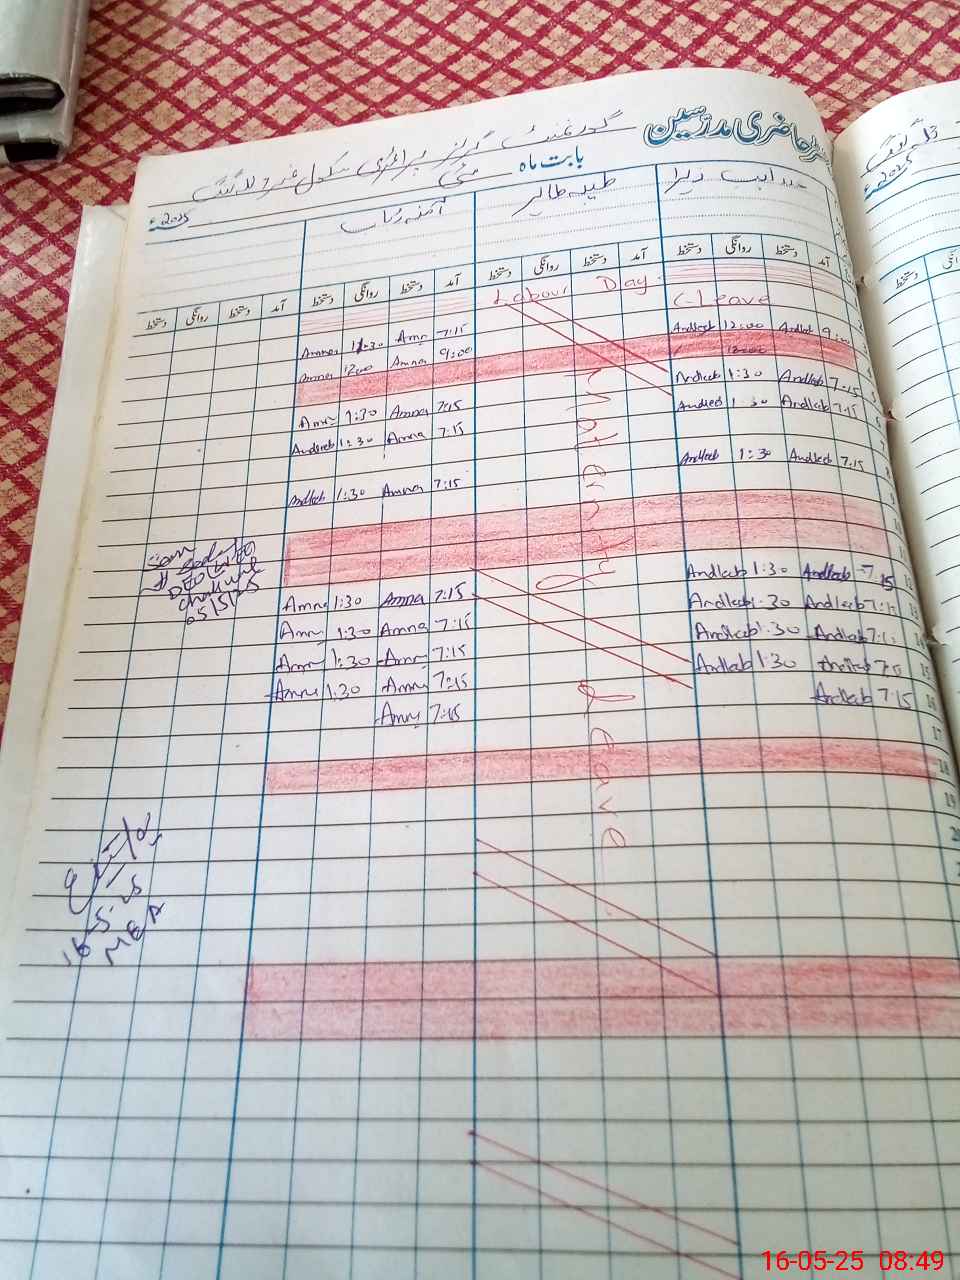 رجسٹر حاضری مدرسین
گورنمنٹ گرلز پرائمری سکول
بابت ماہ مئی 2025ء
عندلیب زہرا طیبہ طاہر آمنہ
آمد دستخط روانگی دستخط آمد دستخط روانگی دستخط آمد دستخط روانگی دستخط آمد دستخط روانگی دستخط
Labour Day
C-Leave
Amna 11:30 Amna 7:15 Andleeb 12:00 Andleeb 9:00
Amna 12:00 Amna 9:00 12:00
Andleeb 1:30 Andleeb 7:15
Amna 1:30 Amna 7:15 Andleeb 1:30 Andleeb 7:15
Andleeb 1:30 Amna 7:15
Andleeb 1:30 Andleeb 7:15
Andleeb 1:30 Amna 7:15
Maternity Leave
Seen
DEO
Chakwal
05/5/25
Amna 1:30 Amna 7:15 Andleeb 1:30 Andleeb 7:15
Amna 1:30 Amna 7:15 Andleeb 1:30 Andleeb 7:15
Amna 1:30 Amna 7:15 Andleeb 1:30 Andleeb 7:15
Amna 1:30 Amna 7:15 Andleeb 1:30 Andleeb 7:15
Amna 7:15 Andleeb 7:15
12
13
14
15
16
17
18
19
16-5-25
MEA
2025
16-05-25 08:49